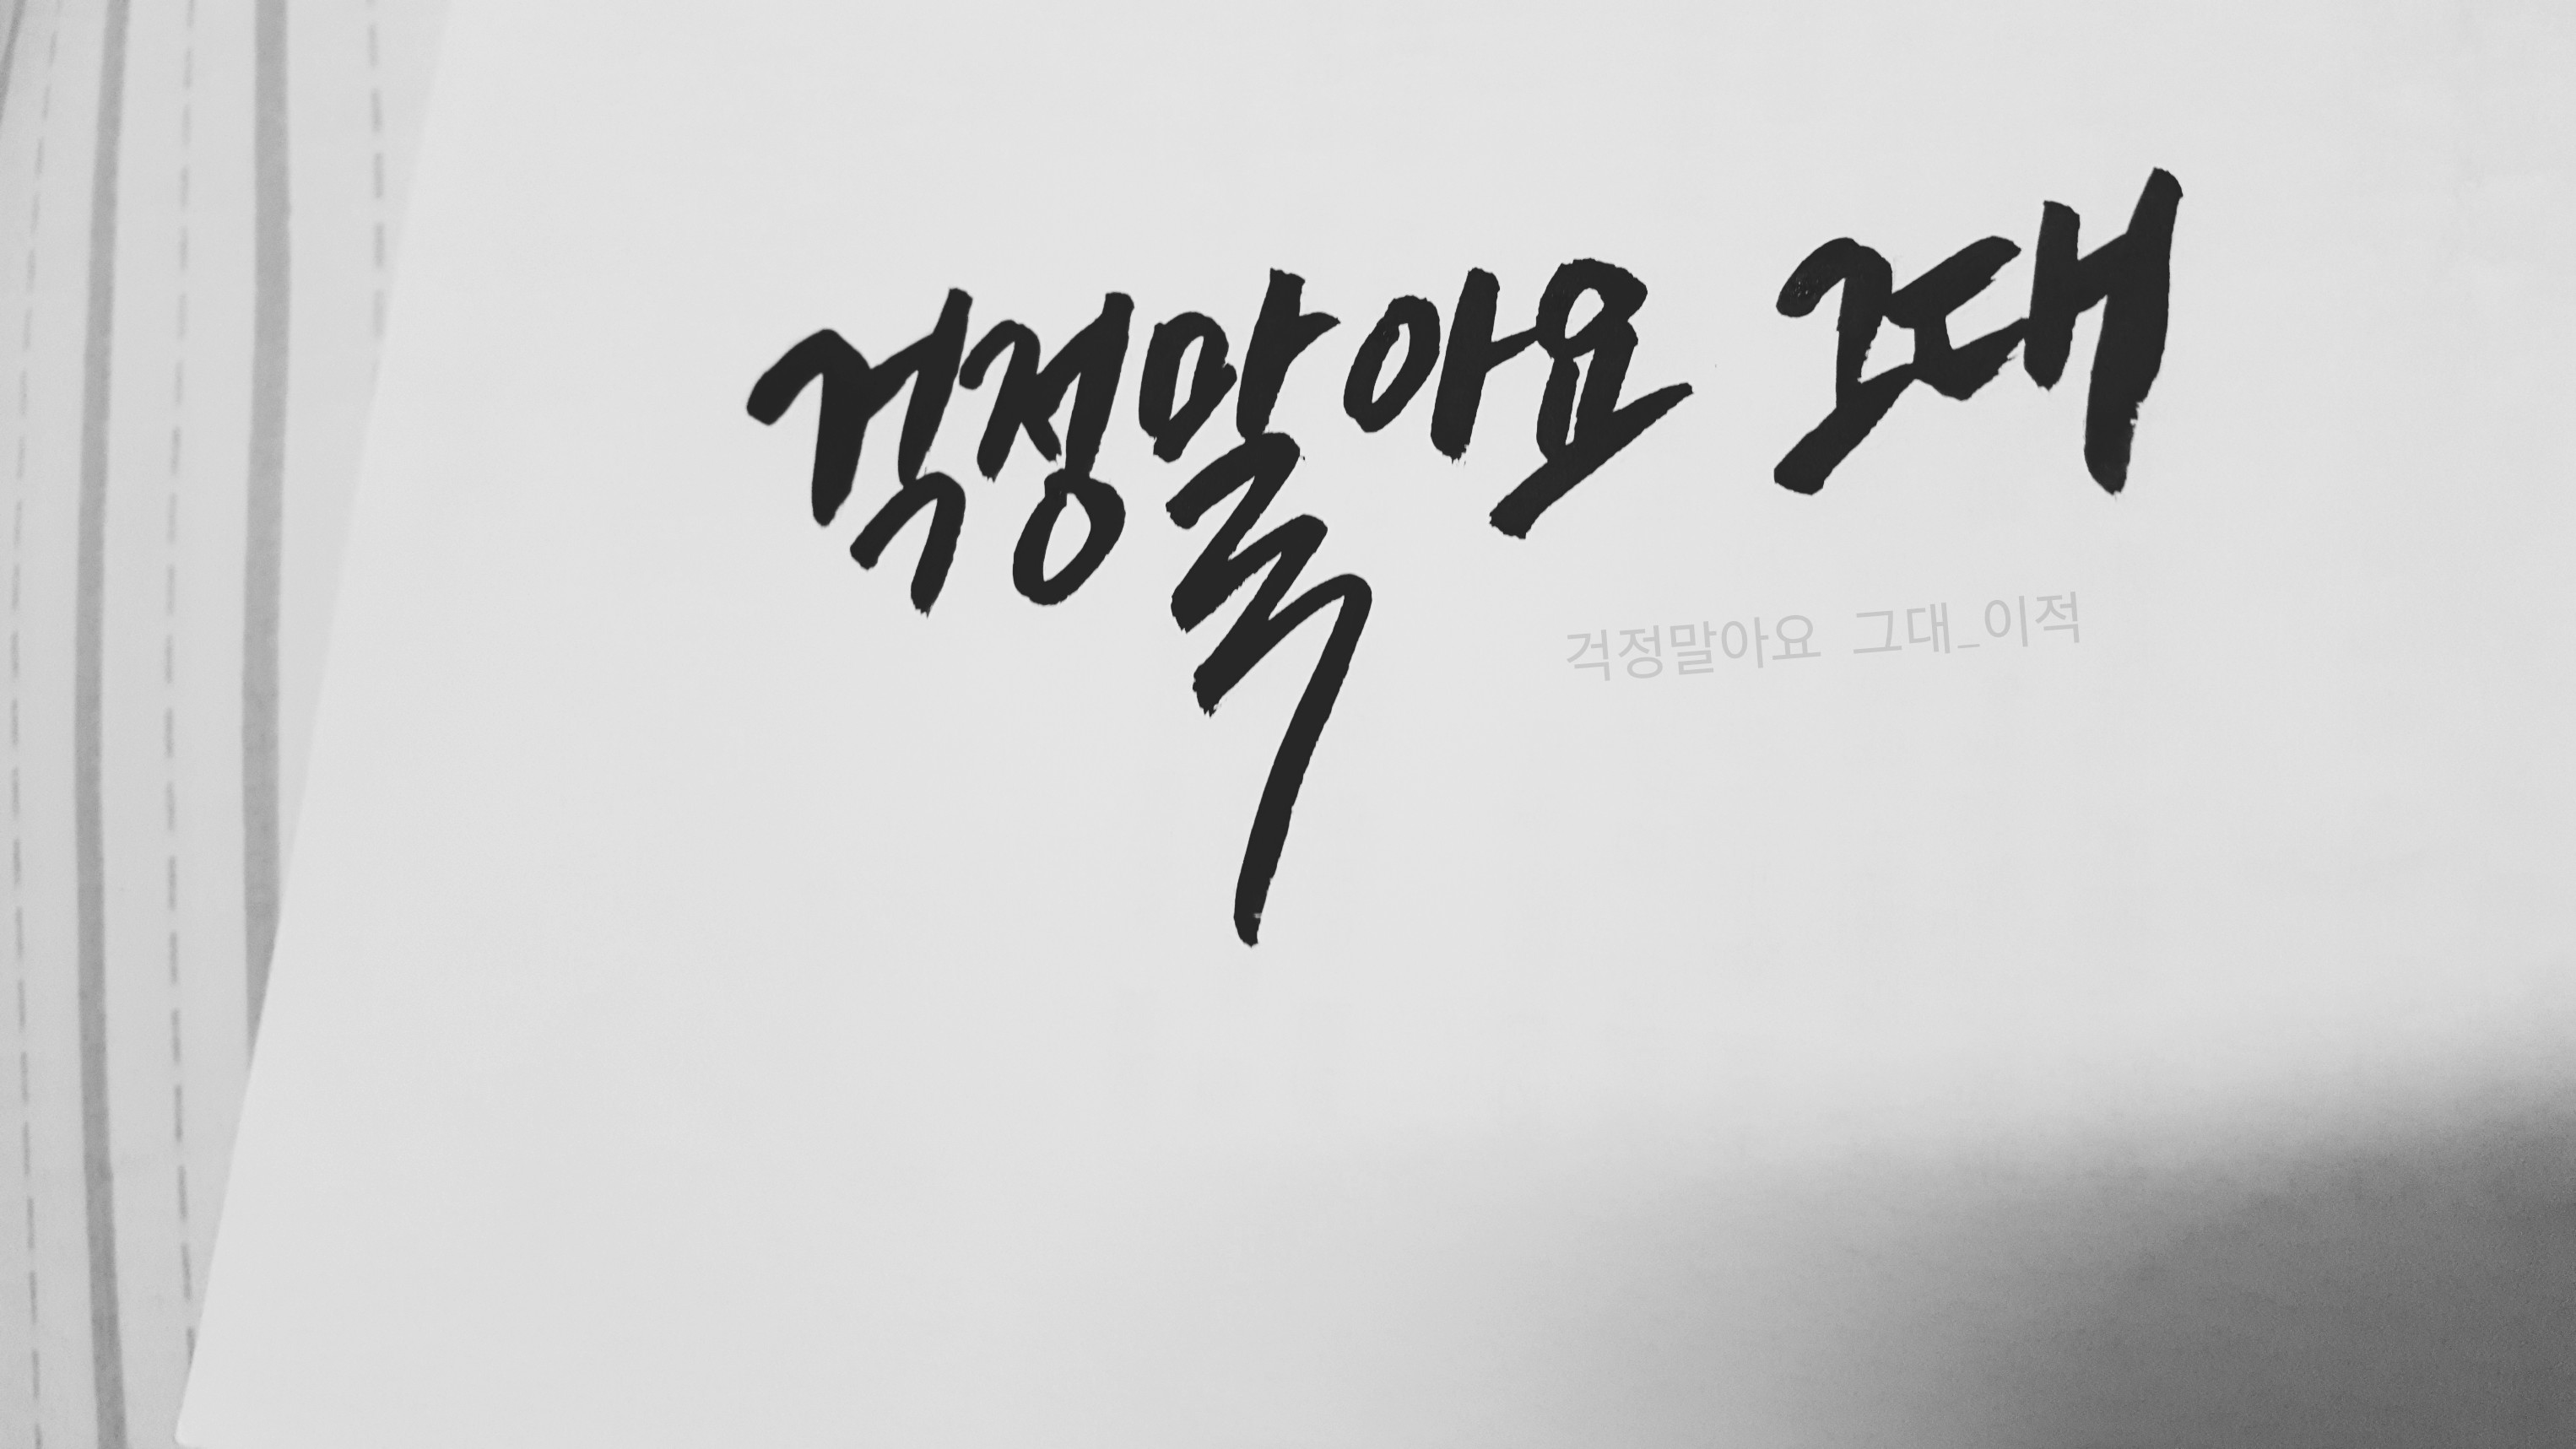 걱정말아요 그대
걱정말아요 그대_이적